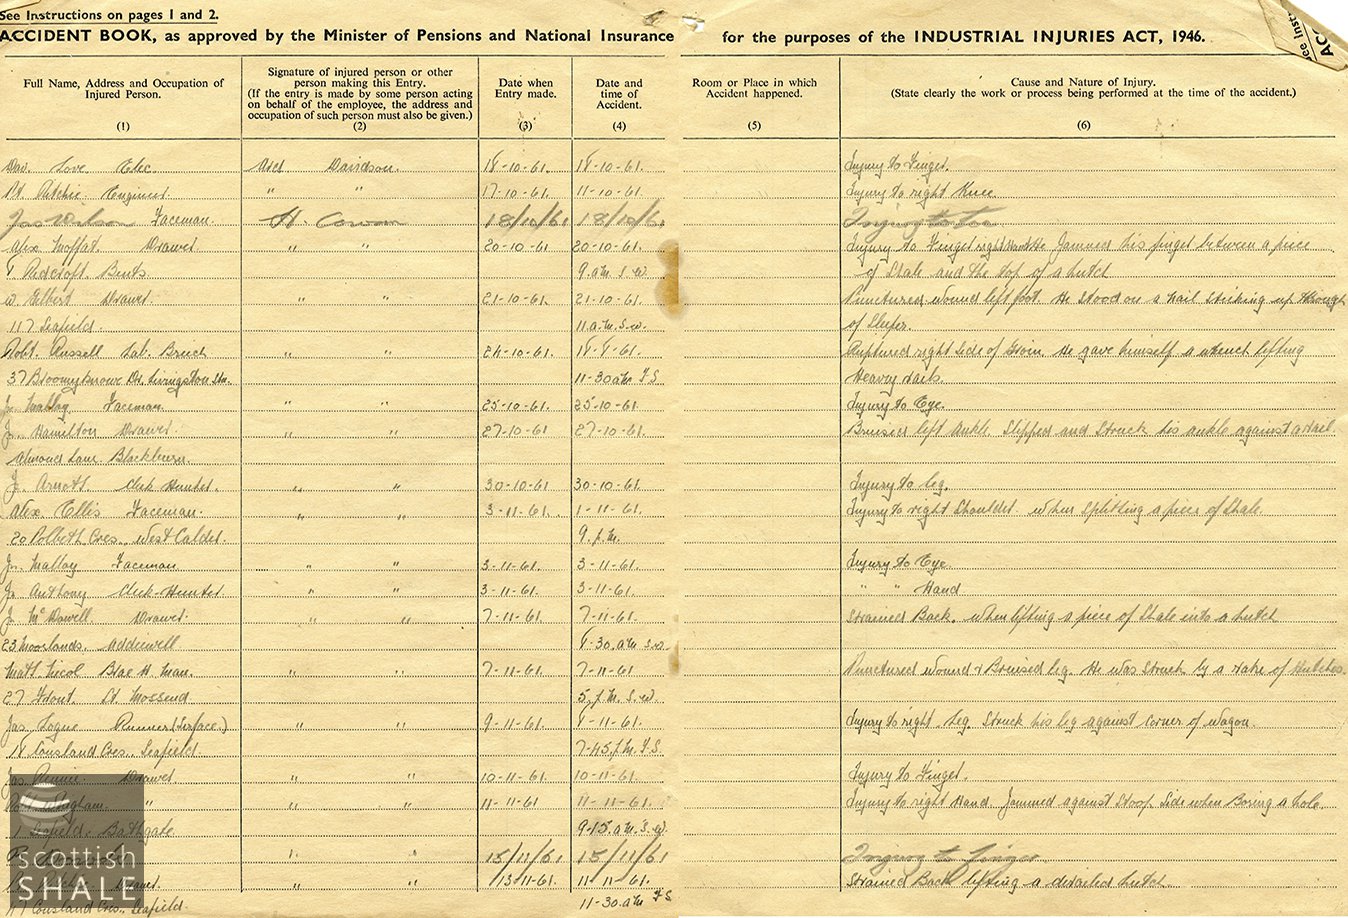 See Instructions on pages 1 and 2.
ACCIDENT BOOK, as approved by the Minister of Pensions and National Insurance for the purposes of the INDUSTRIAL INJURIES ACT, 1946.
See Inst
ACC
Full Name, Address and Occupation of Injured Person.
(1)
Signature of injured person or other person making this Entry.
(If the entry is made by some person acting on behalf of the employee, the address and occupation of such person must also be given.)
(2)
Date when Entry made.
(3)
Date and time of Accident.
(4)
Room or Place in which Accident happened.
(5)
Cause and Nature of Injury.
(State clearly the work or process being performed at the time of the accident.)
(6)
Dav. Love Elec. Davidson. 18-10-61. 18-10-61. Injury to Finger.
Ritchie Engineer " " 17-10-61. 11-10-61. Injury to right Knee
Jas Wilson Faceman. H. Cowan 18/10/61 18/10/61 Injury to
Alex Moffat. Drawer. " " 20-10-61 20-10-61. Injury to Finger right He Jammed his finger between a piece
Redcroft. Bents. 9.a.m. S.W. of Shale and the top of a hutch
W. Gilbert Drawer. " " 21-10-61. 21-10-61. Punctured wound left foot. He stood on a nail sticking up through
117 Seafield. 11.a.m. S.W. of sleeper.
Robt. Russell Lab. Brich " " 24-10-61. 18-8-61. Ruptured right side of Groin. He gave himself a wrench lifting
37 Bloomyknowe Dr. Livingston Stn. 11-30 a.m F.S. Heavy rails.
Jn. Malloy Faceman. " " 25-10-61. 25-10-61. Injury to Eye.
J. Hamilton Drawer. " " 27-10-61 27-10-61. Bruised left ankle. Slipped and struck his ankle against a rail.
Almond Lane. Blackburn.
J. Arnott. Clek Hunter. " " 30-10-61 30-10-61. Injury to leg.
Alex. Ellis Faceman. " " 3-11-61. 1-11-61. Injury to right Shoulder. when splitting a piece of Shale.
20 Polbeth Cres., West Calder. 9.p.m.
Jn. Malloy Faceman " " 3-11-61. 3-11-61. Injury to Eye.
Jn. Anthony Clek-Hunter. " " 3-11-61. 3-11-61. " " Hand
J. McDowell. Drawer. " " 7-11-61. 7-11-61. Strained Back. when lifting a piece of Shale into a hutch
23 Moorlands. Addiewell 8-30.a.m. S.W.
Matt. Nicol Blae H. Man. " " 7-11-61. 7-11-61 Punctured wound & Bruised leg. He was struck by a rake of Hutches.
27 Front. St. Mossend 5.p.m. S.W.
Jas Logue Runner (Surface.) " " 9-11-61. 8-11-61. Injury to right Leg. Struck his leg against corner of wagon.
18 Cousland Cres., Seafield. 7-45.p.m. F.S.
Jas. Rennie. Drawer " " 10-11-61. 10-11-61. Injury to Finger.
" " " 11-11-61 11-11-61. Injury to right Hand. Jammed against Stoop Side when Boring a hole.
Seafield. Bathgate 9-15.a.m. S.W.
" " 15/11/61 15/11/61 Injury to finger
Drawer. " " 13-11-61. 11-11-61. Strained Back lifting a derailed hutch
Cousland Cres., Seafield. 11-30.a.m F.S.
scottish
SHALE